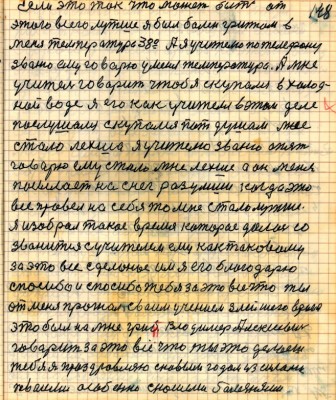 Если это так что может быть от
этого всего лутше я был болен гриппом в
меня температурь 38º А я учителю по телефону
званю ему говарю у меня температурь. А мне
учител говарит чтоб я скупалсь в холод-
ной воде я его как учителя в этом деле
послушалсь скупалсь пот душам мне
стало лекша я учителю званю опят
говарю ему стало мне лекше а он меня
посылает на снег разумши когда это
все провел на себя то мне стало лутше.
Я изобрал такае время котарае делаю со
званится с учителем ему как таковому
за это все сделоные им я его благодарю
спосибо и спосибо тебя за это все што ты
от меня прогнал сваим учением злейшего врага
это боля на мне грип Владимер Алексеевич
говарит за это всё что ты это делаеш
тебя я праздравляю с новим годам 43 силами
тваими особенно с ношими болезнями.
148